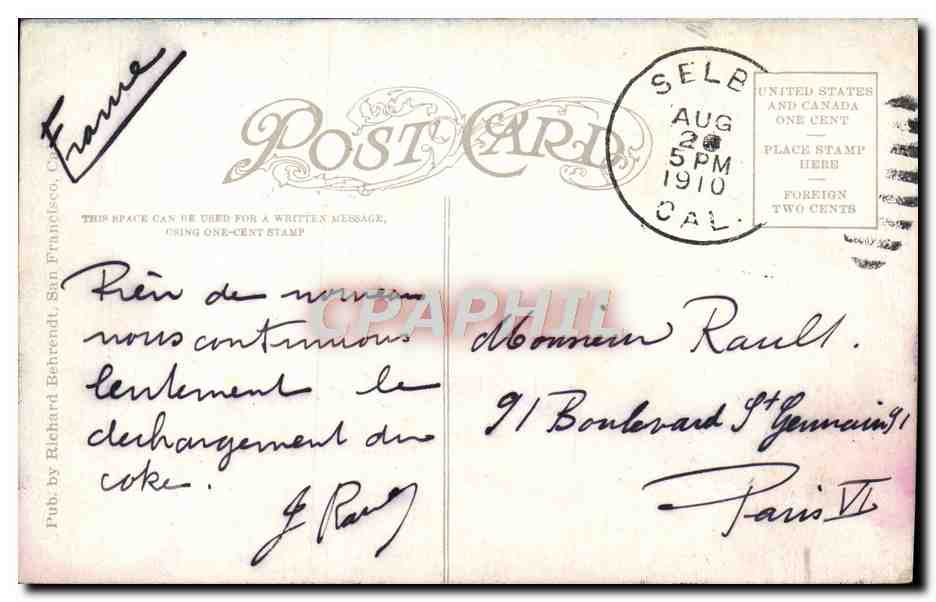 France
POST CARD
THIS SPACE CAN BE USED FOR A WRITTEN MESSAGE,
USING ONE-CENT STAMP
SELB
AUG
5 PM
1910
CAL.
UNITED STATES
AND CANADA
ONE CENT
PLACE STAMP
HERE
FOREIGN
TWO CENTS
Pub. by Richard Behrendt, San Francisco,
Rien de nouveau
nous continuons
lentement le
dechargement du
coke.
Monsieur Rault.
91 Boulevard St Germain 91
Paris VI
CPAPHIL